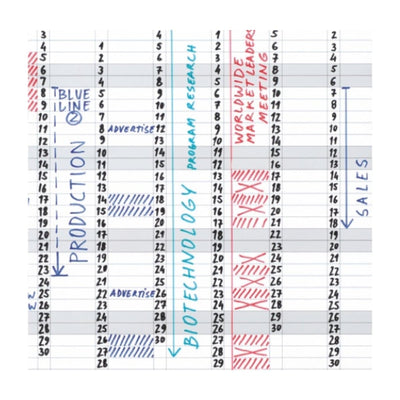 3 4 1 5 2
4 1 5 2 6 3
5 2 6 3 7 4
6 3 7 4 8 5
7 4 8 5 9 6
8 5 9 6 10 7
9 6 10 7 11 8
10 7 11 8 12 9
11 8 ADVERTISE 12 9 13 10
12 9 13 10 14 11
13 10 14 11 15 12
14 11 15 12 16 13
15 12 16 13 17 14
16 13 17 14 18 15
17 14 18 15 19 16
18 15 19 16 20 17
19 16 20 17 21 18
20 17 21 18 22 19
21 18 22 19 23 20
22 19 23 20 24 21
23 20 24 21 25 22
24 21 25 22 26 23
25 22 ADVERTISE 26 23 27 24
26 23 27 24 28 25
27 24 28 25 29 26
28 25 29 26 30 27
29 26 30 27 28
30 27 28 29
28 29 30
BLUE
LINE
2
PRODUCTION
BIOTECHNOLOGY PROGRAM RESEARCH
WORLDWIDE
MARKET LEADERS
MEETING
SALES